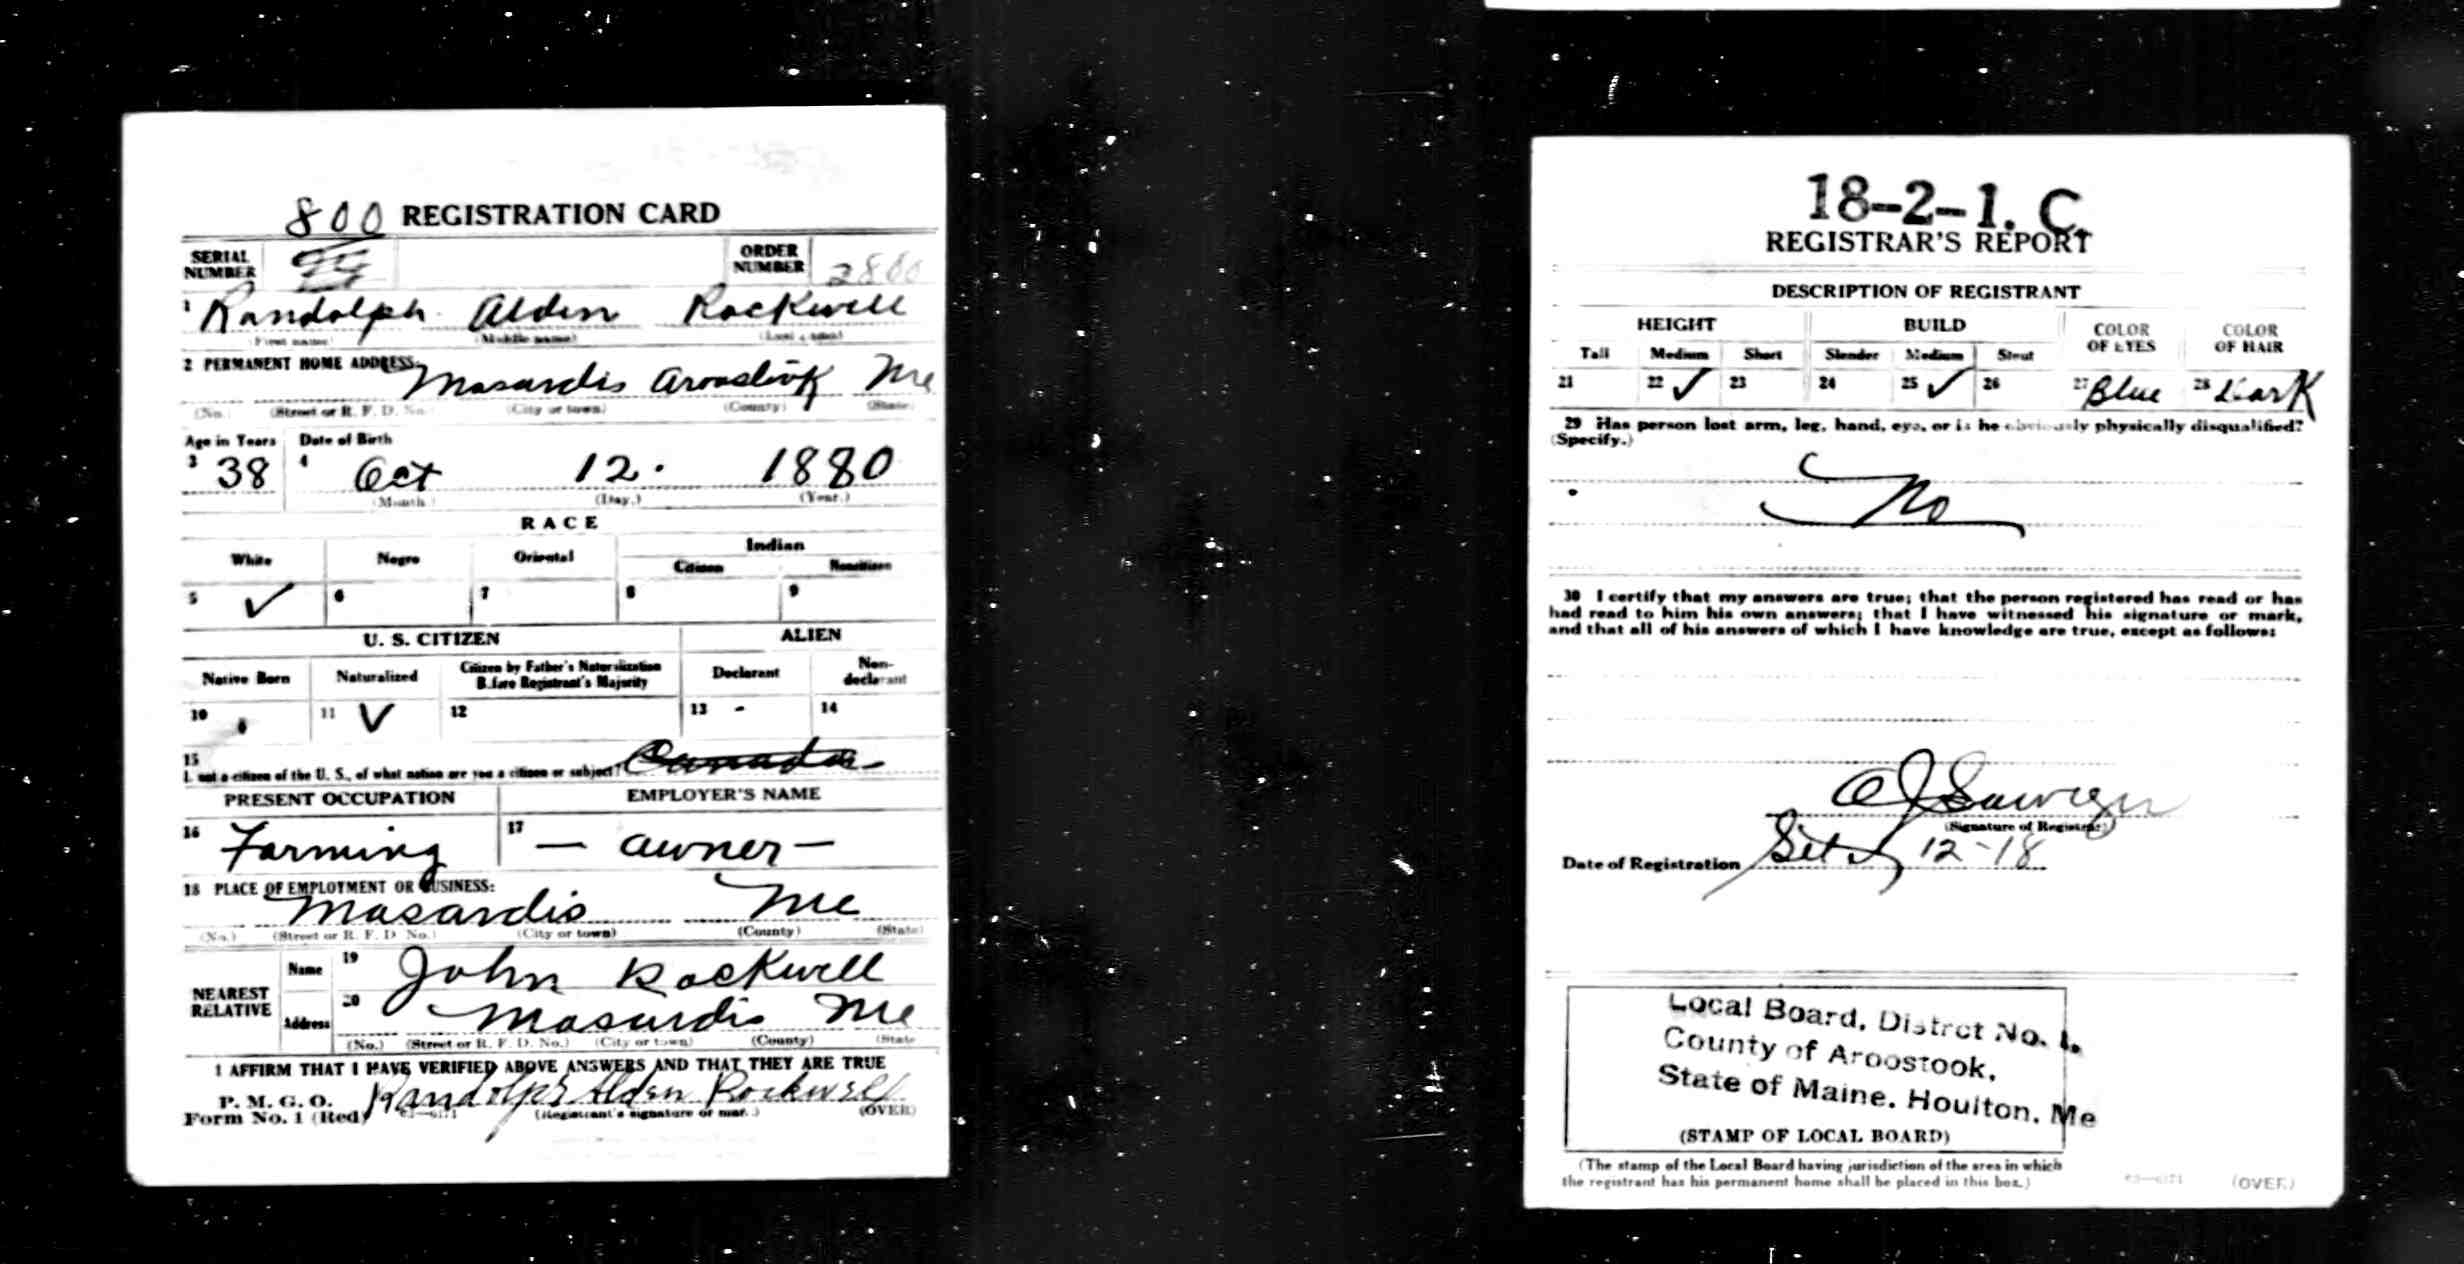 800 REGISTRATION CARD
SERIAL NUMBER
ORDER NUMBER 2880
1 Randolph Alden Rockwell
(First name) (Middle name) (Last name)
2 PERMANENT HOME ADDRESS: Masardis Aroostook Me
(No.) (Street or R. F. D. No.) (City or town) (County) (State)
Age in Years Date of Birth
3 38 4 Oct 12. 1880
(Month.) (Day.) (Year.)
RACE
White Negro Oriental Indian
Citizen Noncitizen
5 ✓ 6 7 8 9
U. S. CITIZEN ALIEN
Native Born Naturalized Citizen by Father's Naturalization Before Registrant's Majority Declarant Non-declarant
10 11 ✓ 12 13 - 14
15
If not a citizen of the U. S., of what nation are you a citizen or subject? Canada
PRESENT OCCUPATION EMPLOYER'S NAME
16 Farming 17 — owner —
18 PLACE OF EMPLOYMENT OR BUSINESS:
Masardis Me
(No.) (Street or R. F. D. No.) (City or town) (County) (State)
NEAREST RELATIVE
Name 19 John Rockwell
Address 20 Masardis Me
(No.) (Street or R. F. D. No.) (City or town) (County) (State
I AFFIRM THAT I HAVE VERIFIED ABOVE ANSWERS AND THAT THEY ARE TRUE
P. M. G. O.
Form No. 1 (Red) Randolph Alden Rockwell
(Registrant's signature or mark.) (OVER)
18-2-1. C.
REGISTRAR'S REPORT
DESCRIPTION OF REGISTRANT
HEIGHT BUILD COLOR OF EYES COLOR OF HAIR
Tall Medium Short Slender Medium Stout
21 22 ✓ 23 24 25 ✓ 26 27 Blue 28 Dark
29 Has person lost arm, leg, hand, eye, or is he obviously physically disqualified?
(Specify.)
No
30 I certify that my answers are true; that the person registered has read or has
had read to him his own answers; that I have witnessed his signature or mark,
and that all of his answers of which I have knowledge are true, except as follows:
(Signature of Registrar)
Date of Registration 12-18
Local Board, District No. 1.
County of Aroostook,
State of Maine. Houlton, Me
(STAMP OF LOCAL BOARD)
(The stamp of the Local Board having jurisdiction of the area in which
the registrant has his permanent home shall be placed in this box.)
(OVER)